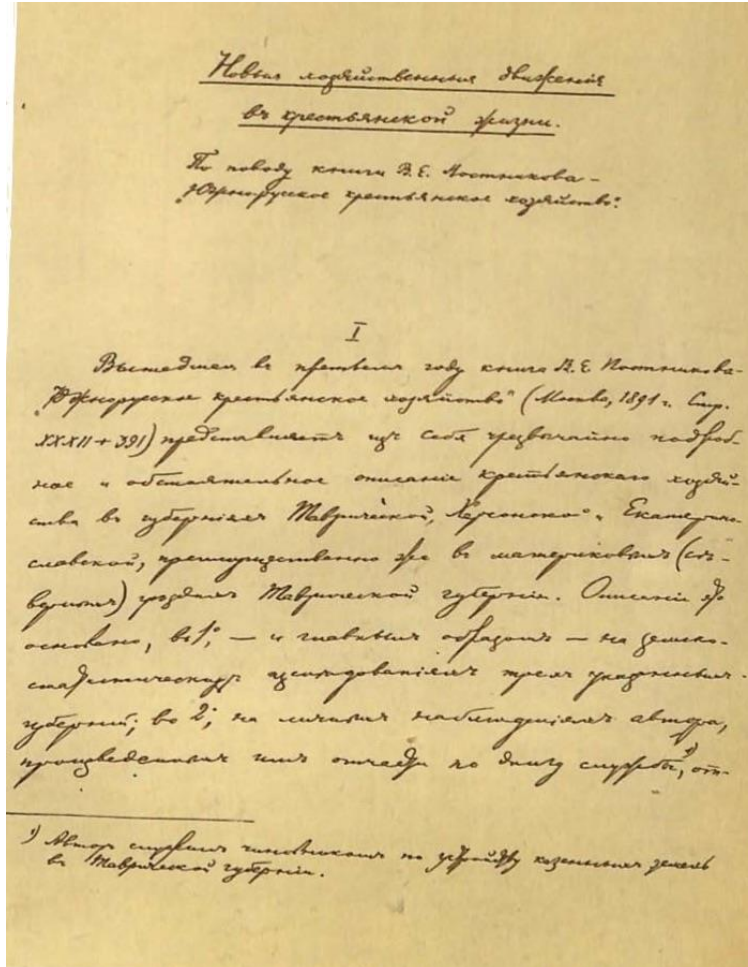 Новыя хозяйственныя движенія
въ крестьянской жизни.
По поводу книги В. Е. Постникова –
„Южнорусское крестьянское хозяйство“.
I
Вышедшая въ третьемъ году книга В. Е. Постникова –
„Южнорусское крестьянское хозяйство“ (Москва, 1891 г. Стр.
XXXII + 391) представляетъ изъ себя чрезвычайно подроб-
ное и обстоятельное описаніе крестьянскаго хозяй-
ства въ губерніяхъ Таврической, Херсонской и Екатерино-
славской, преимущественно же въ материковыхъ (сѣ-
верныхъ) уѣздахъ Таврической губерніи. Описаніе это
основано, во 1ˣ, — и главнымъ образомъ — на земско-
статистическихъ изслѣдованіяхъ трехъ указанныхъ
губерній; во 2ˣ, на личныхъ наблюденіяхъ автора,
произведенныхъ имъ отчасти по долгу службы¹⁾, отч-
¹⁾ Авторъ служилъ чиновникомъ по устройству казенныхъ земель
въ Таврической губерніи.